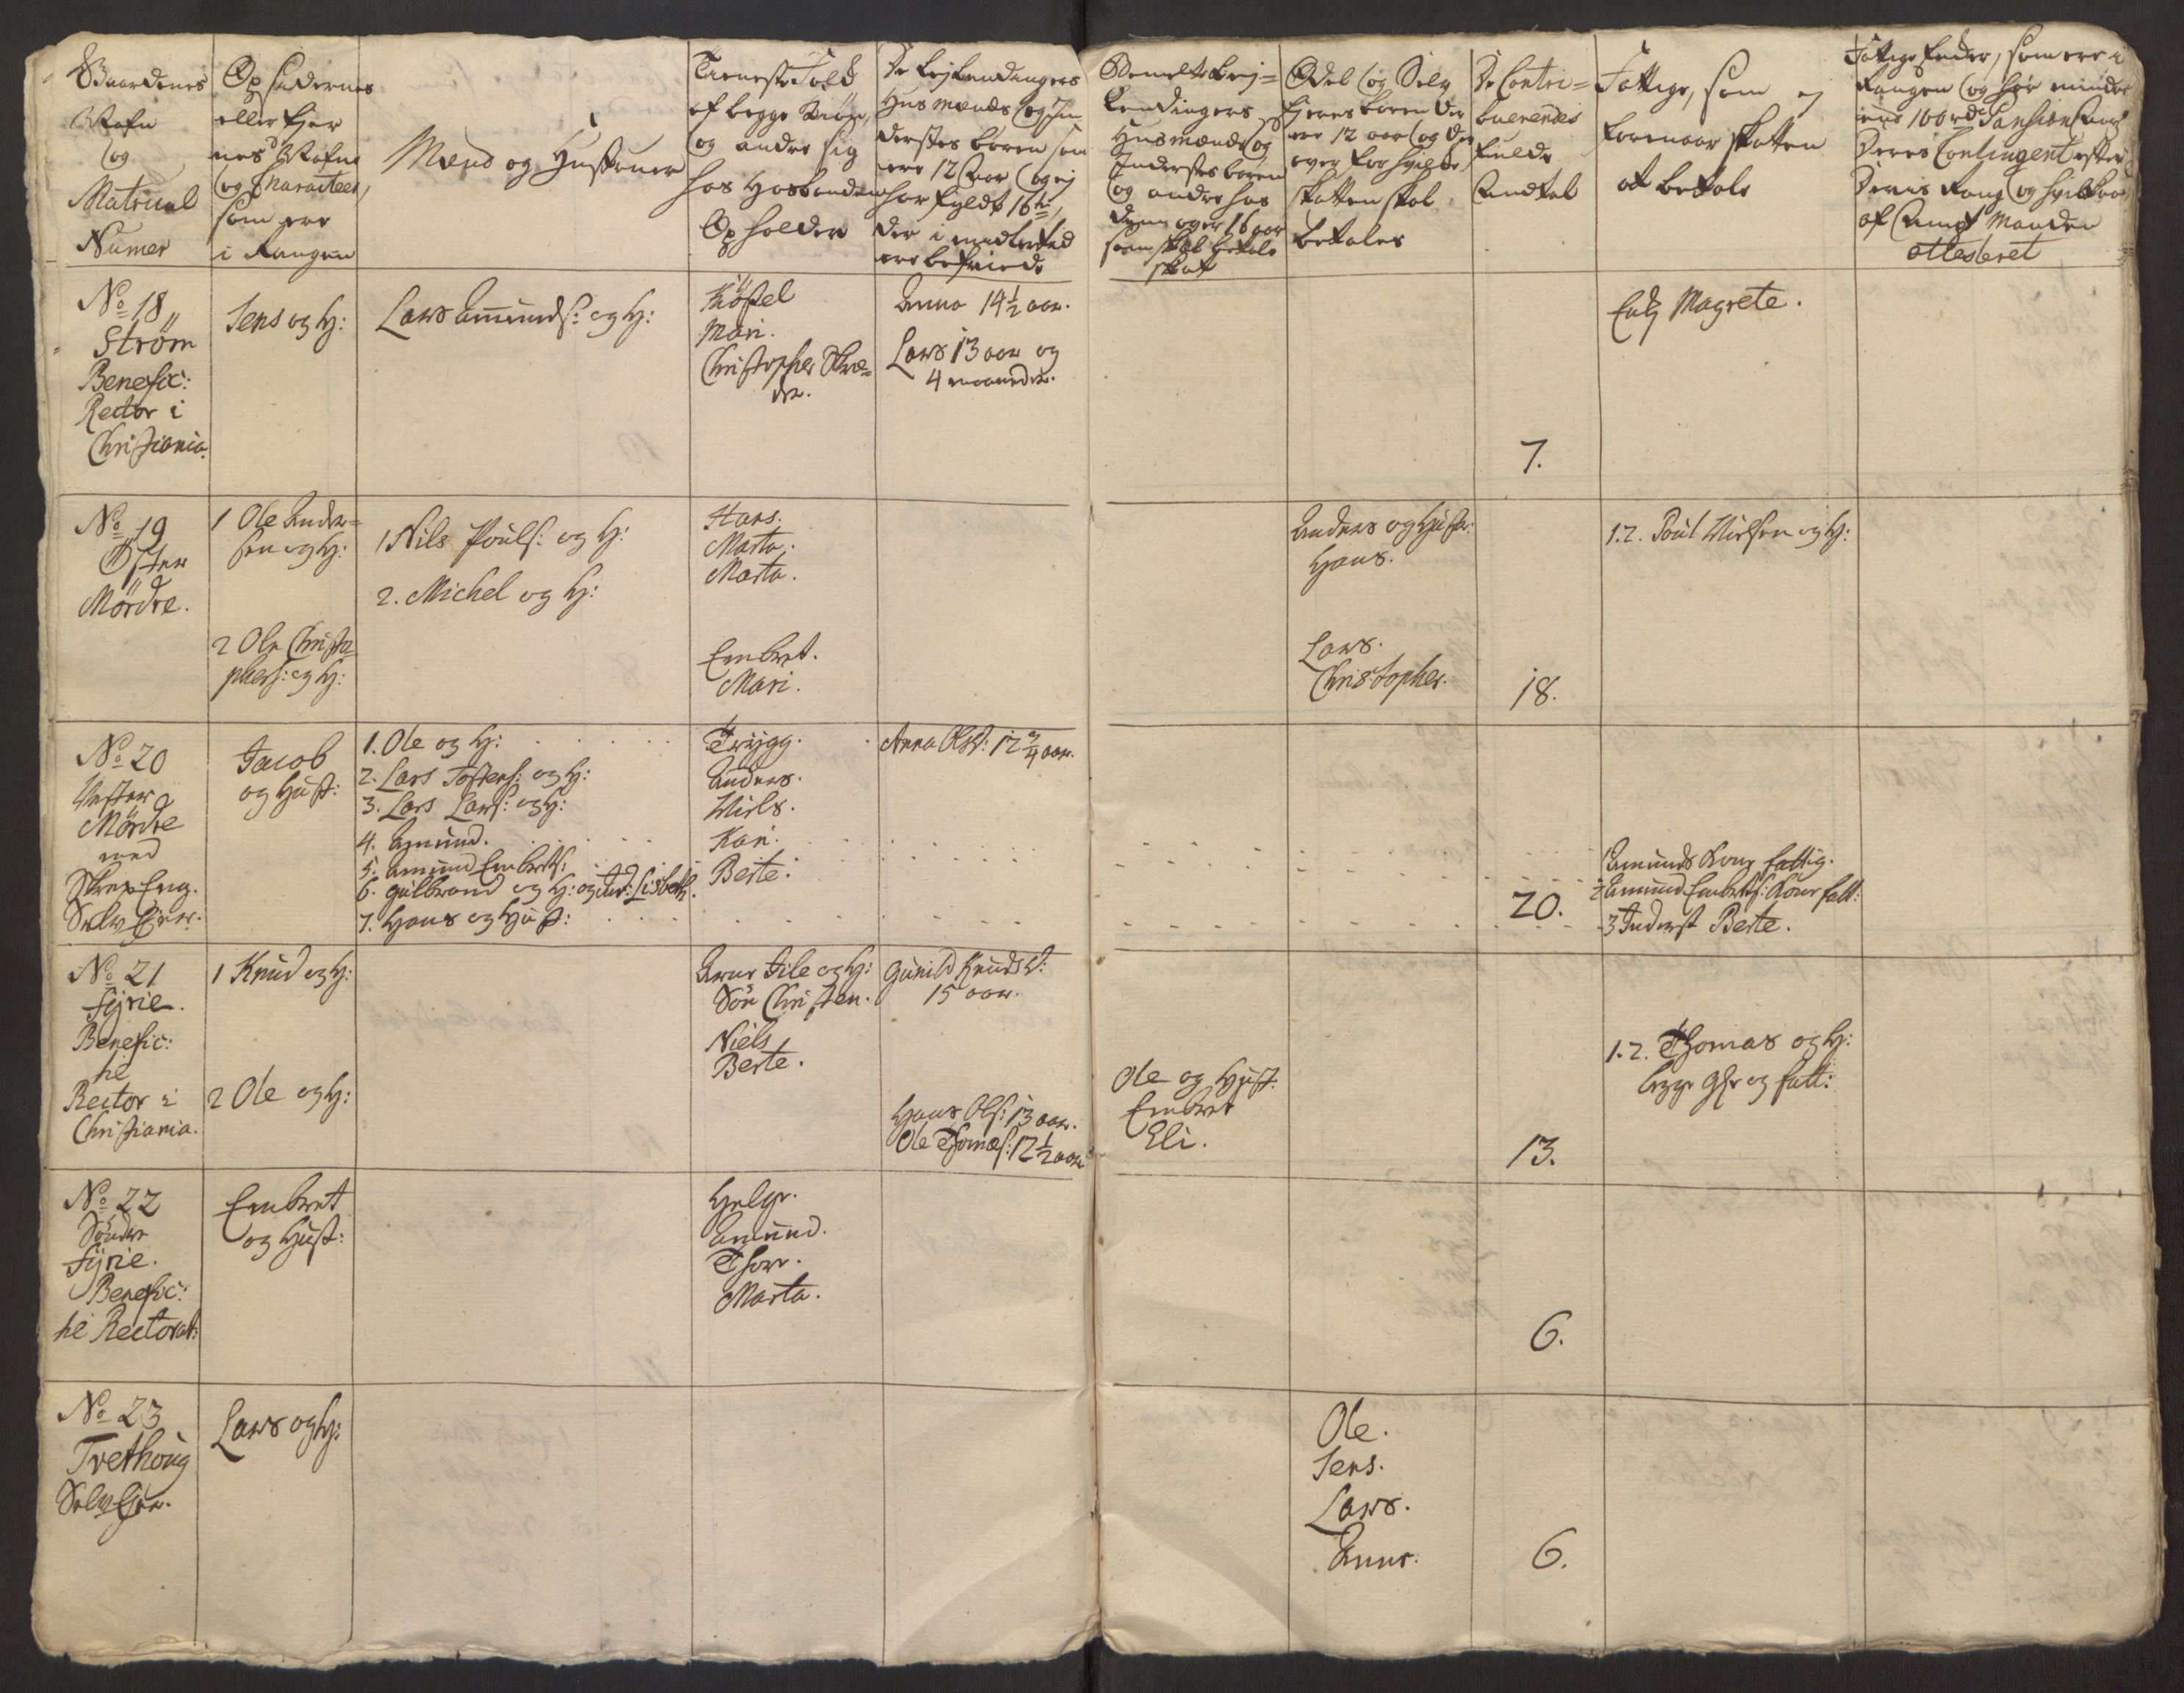 Gaardenes
Nafn
og
Matricul
Numer
Opsidernes
eller Ejer
nes Nafne
og Characteer,
som ere
i Rangen
Mænd og Hustruer
Tieneste Folk
af begge Kiön,
og andre sig
hos Hosbonden
Opholder
De Lejlendingers
Husmænds og In
derstes børen som
ere 12 Aar og ej
har fyldt 16ten,
der i midlertid
ere befriede
Bemelte Lejl=
lendingers
Husmænds og
Inderstes børen
og andre hos
dem over 16 aar
som skal betale
skat
Odel og Selv
Ejeres børen der
ere 12 aar og der
over for hvilke
skatten skal
betales
De Contri=
buerendes
fulde
Andtal
Fattige, som ej
formaar skatten
at betale
Fattige Enker, som ere i
Rangen og har minder
end 100 rd Pansion Aarl
Deres Contingent efter
Deris Rang og hvilkaar
af Amptmanden
attesteret
No 18
Ström
Benefic:
Rector i
Christiania.
Jens og H:
Lars Amunds: og H:
Kiöstel
Mari.
Christopher Skræ=
der.
Anna 14 1/2 aar.
Lars 13 aar og
4 maaneder.
7.
Enk Magrete.
No 19
Öster
Mördre.
1 Ole Ander=
sen og H:
2 Ole Christo
phers: og H:
1 Nils Pouls: og H:
2. Michel og H:
Hans.
Marta.
Marta.
Embret.
Mari.
Anders og Hustr:
Hans.
Lars.
Christopher.
18.
1.2. Poul Nielsen og H:
No 20
Vester
Mördre
med
Skrep Eng.
Selv Ejer.
Jacob
og Hust:
1. Ole og H:
2. Lars Tostens: og H:
3. Lars Lars: og H:
4. Amund.
5. Amund Embrets:
6. Gulbrand og H: og Ind: Lisbeth.
7. Hans og Hust:
Trygg.
Anders.
Niels.
Kari.
Berte.
Anna Olsd: 12 3/4 aar.
20.
1 Amunds Kone fattig.
2 Amund Embrets: Kone fatt:
3 Inderst Berte.
No 21
Fyrie.
Benefic:
til
Rector i
Christiania.
1 Knud og H:
2 Ole og H:
Arne File og H:
Sön Christen.
Niels
Berte.
Gunild Knudsd:
15 aar.
Hans Ols: 13 aar.
Ole Thomæs: 12 1/2 aar
Ole og Hust:
Embret
Eli.
13.
1.2. Thomas og H:
begge gl: og fatt:
No 22
Sönder
Fyrie.
Benefic:
til Rectorat:
Embret
og Hust:
Helge.
Amund.
Thore.
Marta.
6.
No 23
Trethoug
Selv Ejer.
Lars og H:
Ole.
Jens.
Lars.
Anne.
6.